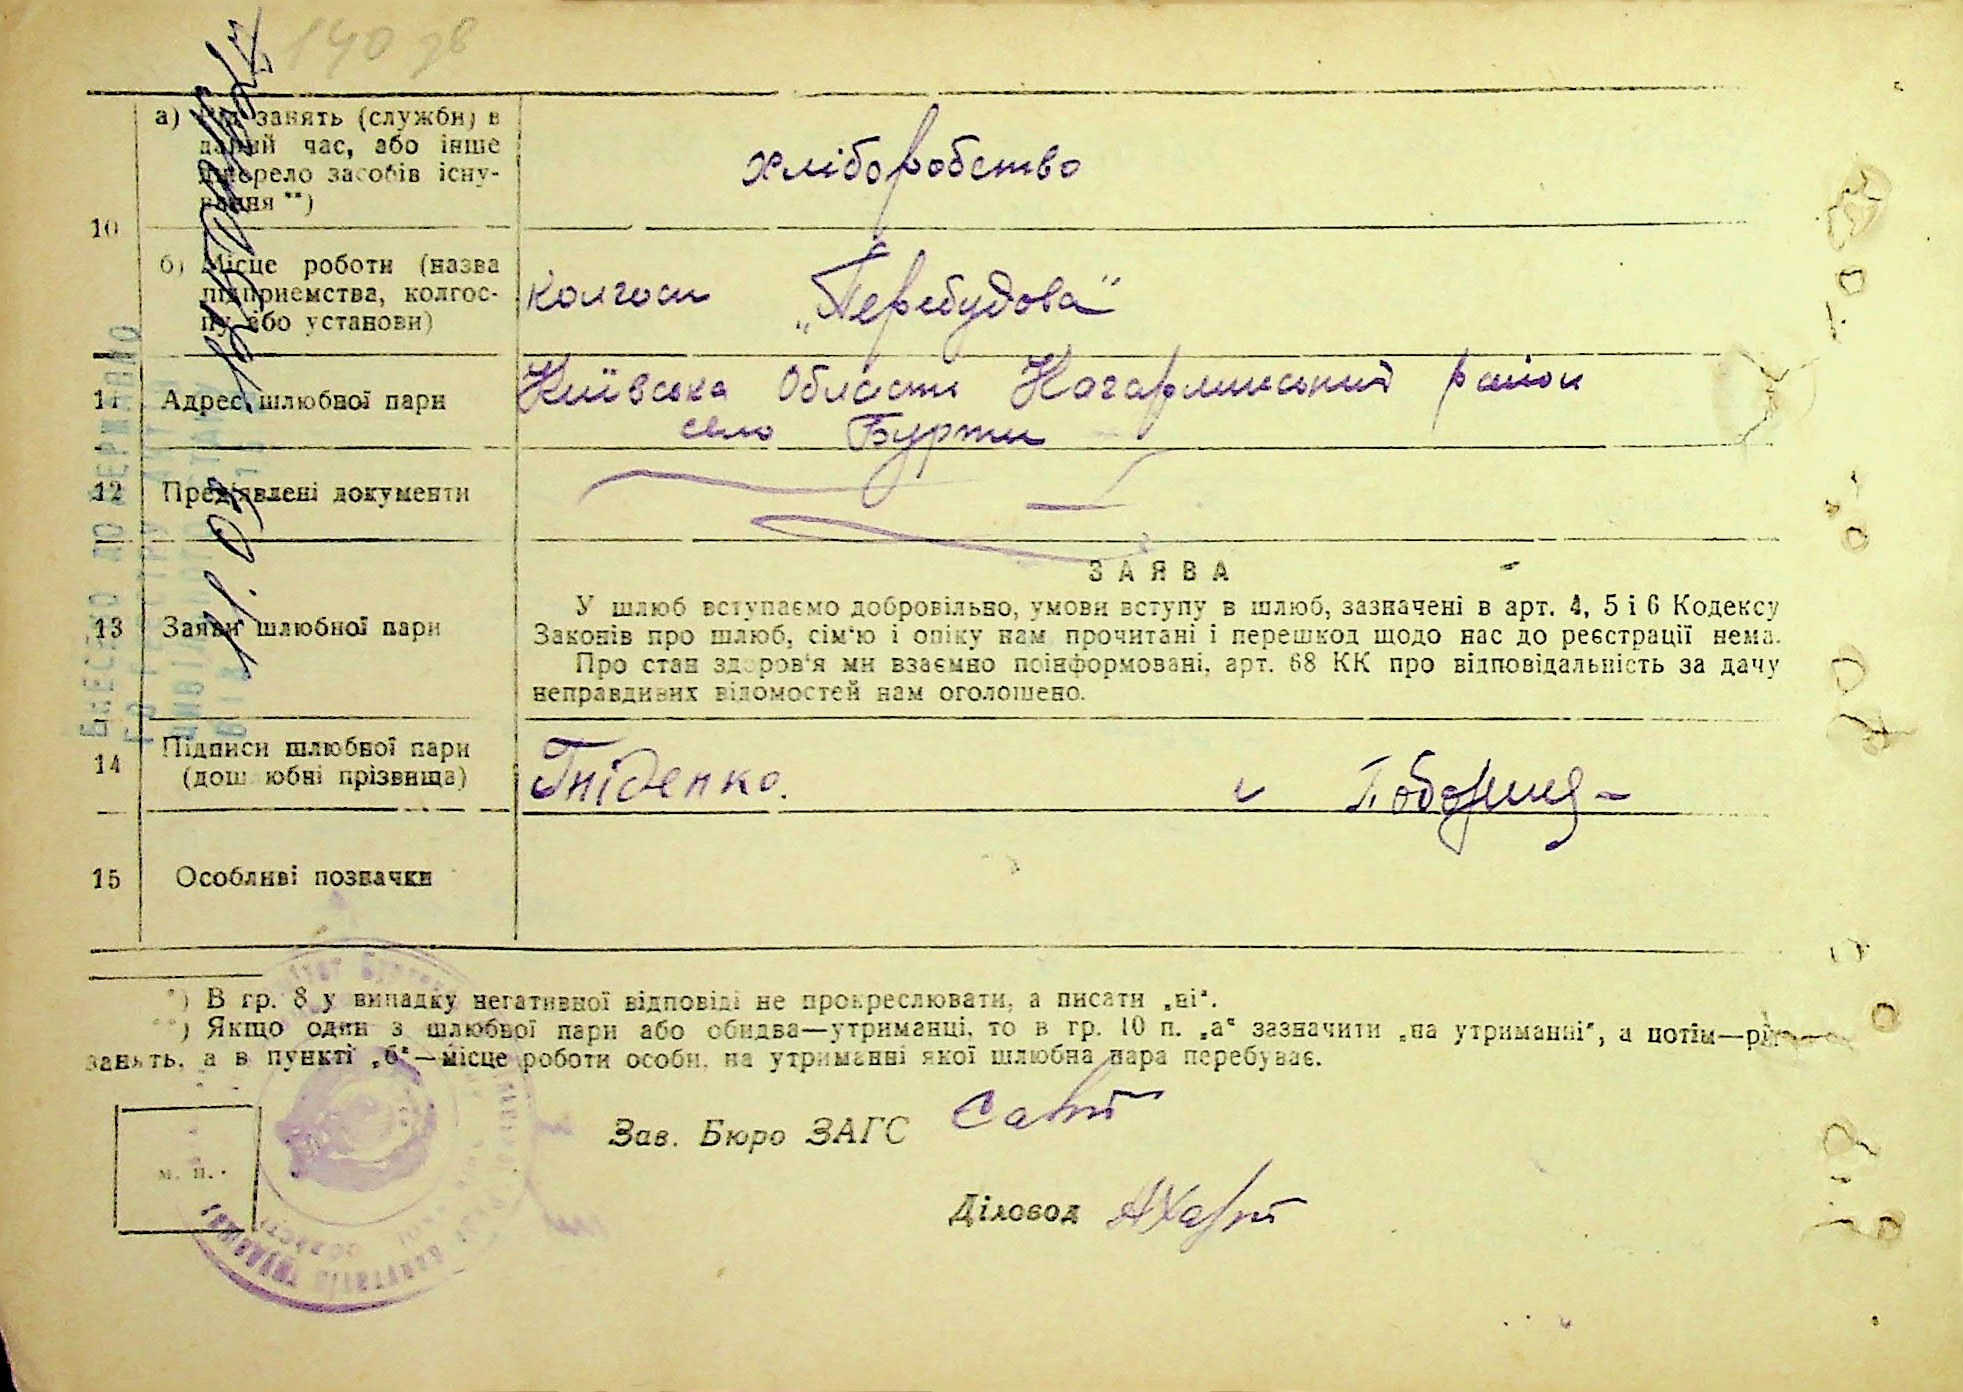 140 зв
10
а) Рід занять (служби) в
даний час, або інше
джерело засобів існу-
вання **)
хліборобство
б) Місце роботи (назва
підприємства, колгос-
пу або установи)
колгосп „Перебудова“
11
Адрес шлюбної пари
Київська Область Кагарлицький район
село Бурти
12
Пред'явлені документи
13
Заяви шлюбної пари
ЗАЯВА
У шлюб вступаємо добровільно, умови вступу в шлюб, зазначені в арт. 4, 5 і 6 Кодексу
Законів про шлюб, сім'ю і опіку нам прочитані і перешкод щодо нас до реєстрації нема.
Про стан здоров'я ми взаємно поінформовані, арт. 68 КК про відповідальність за дачу
неправдивих відомостей нам оголошено.
14
Підписи шлюбної пари
(дошлюбні прізвища)
Гніденко.
и
15
Особливі позначки
*) В гр. 8 у випадку негативної відповіді не прокреслювати, а писати „ні“.
**) Якщо один з шлюбної пари або обидва—утриманці, то в гр. 10 п. „а“ зазначити „на утриманні“, а потім—рід
занять, а в пункті „б“—місце роботи особи, на утриманні якої шлюбна пара перебуває.
м. п.
Зав. Бюро ЗАГС
Діловод
ВНЕСЕНО ДО ДЕРЖАВНОГО